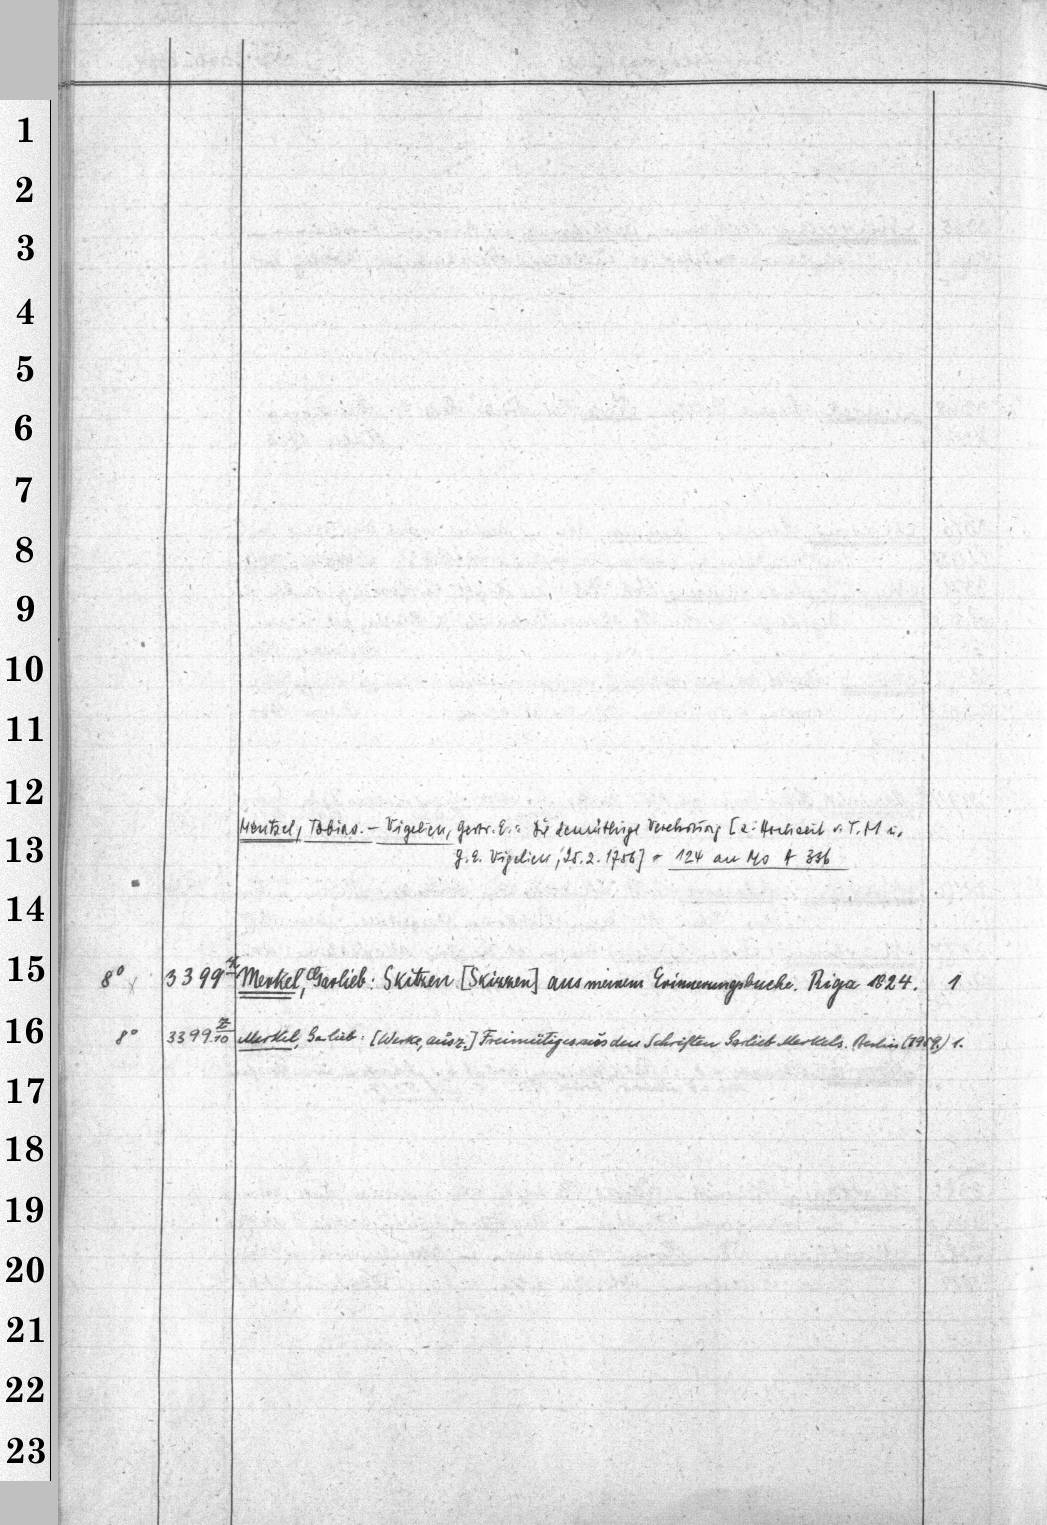 1
2
3
4
5
6
7
8
9
10
11
12
Mentzel, Tobias. – Vigelien, Gertr. E.: Die demüthige Verehrung [z. Hochzeit v. T. M u.
13
G. E. Vigelien, 25. 2. 1706] = 124 an Mo A 336
14
15
8° 3399 Merkel, Garlieb: Skitzen [Skizzen] aus meinem Erinnerungsbuche. Riga 1824. 1
16
8° 3399 10 Merkel, Garlieb: [Werke, ausz.] Freimütiges aus den Schriften Garlieb Merkels. Berlin (1959.) 1.
17
18
19
20
21
22
23